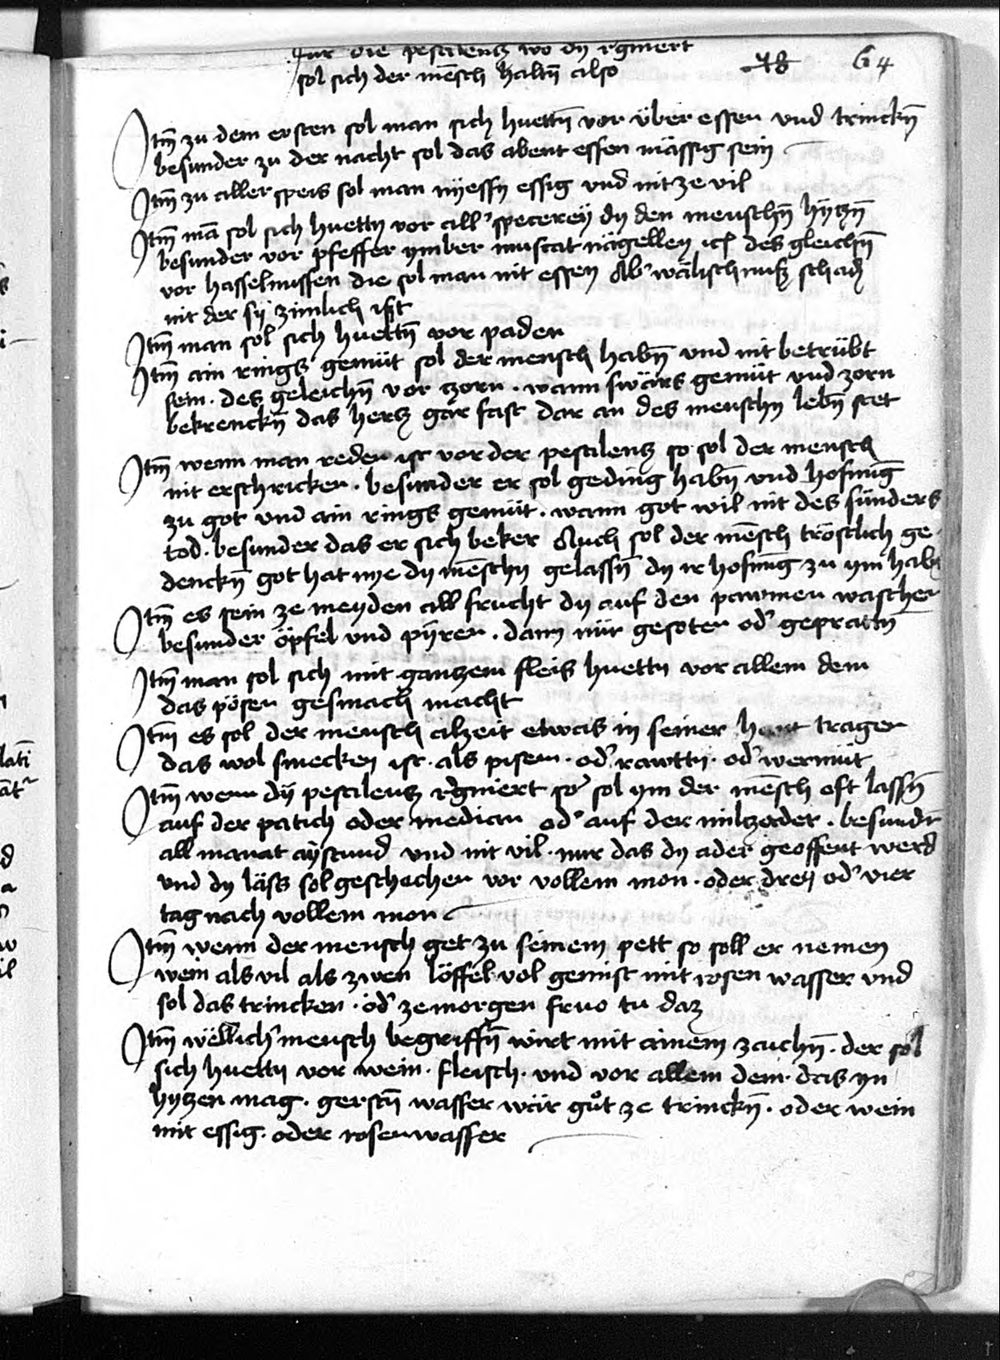 Fur die pestilentz wo dy rgniert
sol sich der mēsch haltn̄ also
48 64
Itm̄ zu dem ersten sol man sich huettn̄ vor über essen und trinckn̄
besunder zu der nacht sol das abent essen mässig sein
Itm̄ zu aller speis sol man nyessn essig vnd nit ze vil
Itm̄ mā sol sich huettn vor all' specereÿ dy den menschn̄ hytzn̄
besunder vor pfeffer ymber muscat nägelleyn des gleichn̄
vor hasselnussen die sol man nit essen Ab' wälisch nuß schadn
nit der sÿ zimlich ist
Itm̄ man sol sich huettn̄ vor paden
Itm̄ ain rings gemüt sol der mensch habn̄ vnd nit betrübt
sein. des geleichn̄ vor zorn. wann swärs gemüt vnd zorn
bekrenckn̄ das hertz gar fast dar an des menschn lebn̄ stet
Itm̄ wenn man reden ist von der pestilentz so sol der mensch
nit erschricken. besunder er sol geding habn̄ vnd hofnūg
zu got vnd ain rings gemüt. wann got wil nit des sünders
tod. besunder das er sich beker Auch sol der mēsch tröstlich ge
denckn̄ got hat nye dy mēschn gelassn̄ dy ir hofnūg zu ym habn
Itm̄ es sein ze meyden all frucht dy auf den pawmen wachsen
besunder öpfel vnd pÿren. dann nür gesoten od' gepratn̄
Itm̄ man sol sich mit gantzem fleis huettn vor allem dem
das pösen gesmach macht
Itm̄ es sol der mensch alzeit etwas in seiner hant tragen
das wol smecken ist. als pisem. od' rawttn. od' wermüt
Itm̄ wenn dÿ pestilentz rgniert so sol ym der mēsch oft lassn̄
auf der patich oder median od' auf der miltzader. besundr
all manat aÿstund vnd nit vil. nur das dy ader geoffent werd
vnd dy läss sol geschechen vor vollem mon. oder dreÿ od' vier
tag nach vollem mon
Itm̄ wenn der mensch get zu seinem pett so soll er nemen
wein als vil als zwen löffel vol gemist mit rosen wasser vnd
sol das trincken. od' ze morgen fruo tu daz
Itm̄ wëllich mensch begriffn̄ wirt mit ainem zaichn̄. der sol
sich huettn vor wein. fleisch. vnd vor allem dem. das yn
hytzen mag. gerstn̄ wasser wär gůt ze trinckn̄. oder wein
mit essig. oder rosenwasser